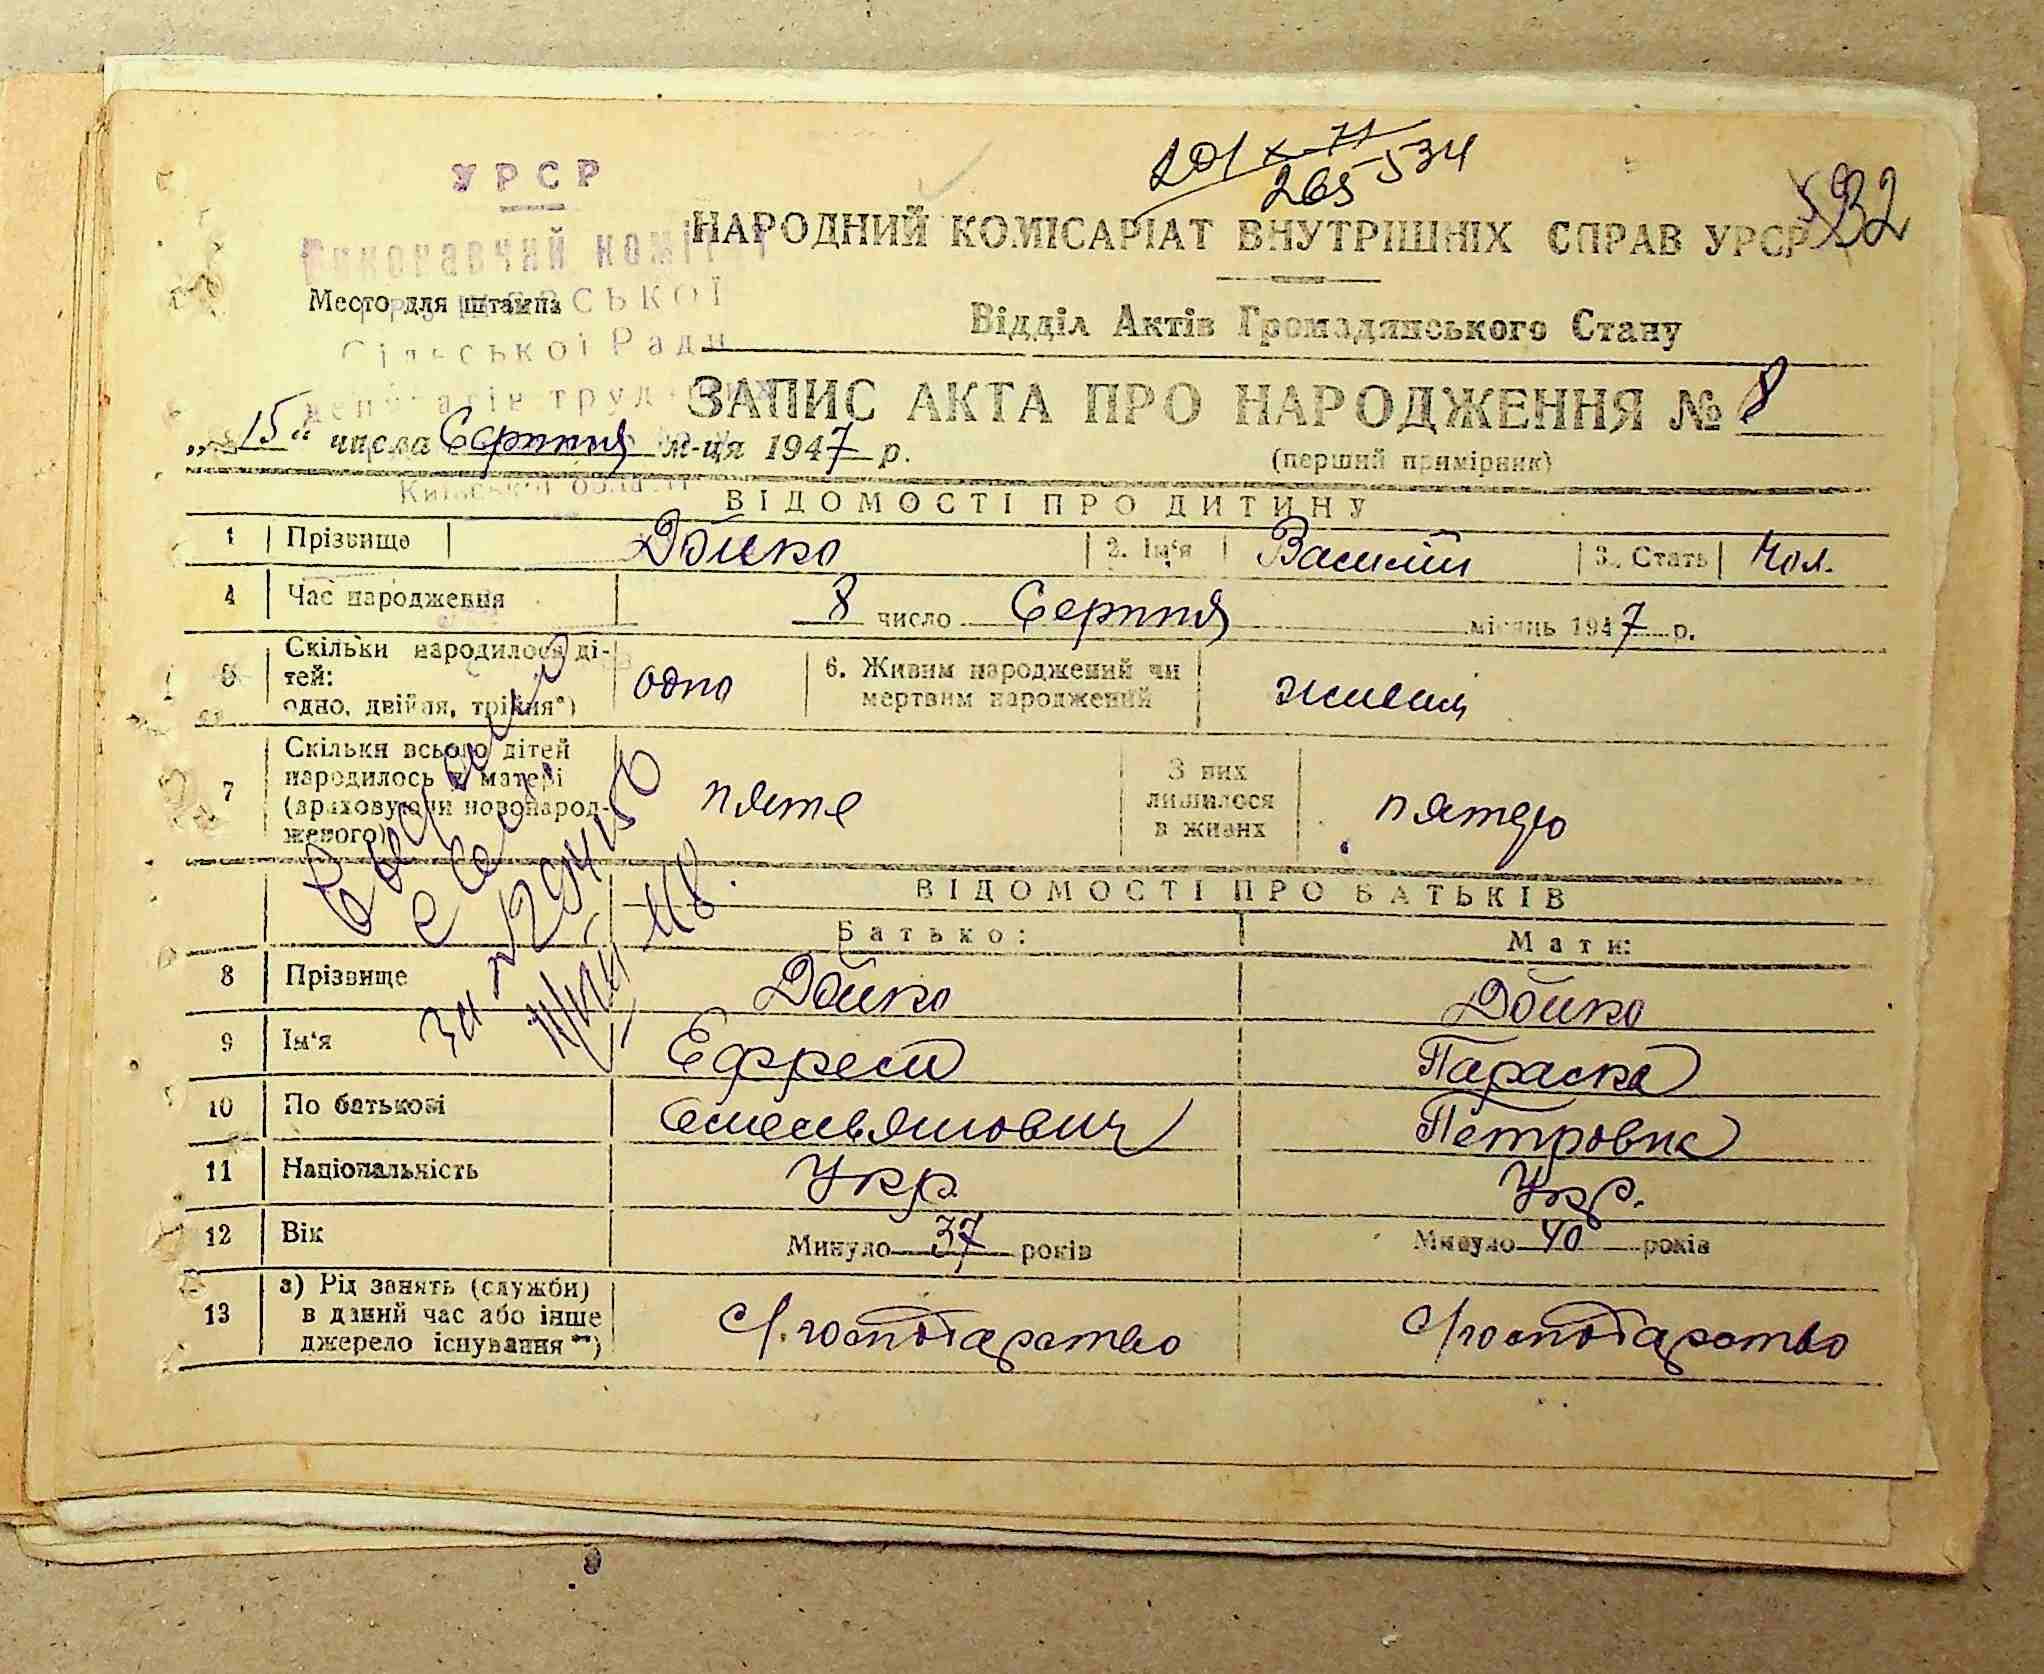 201 х-71
265-534
532
УРСР
Виконавчий комітет
НАРОДНИЙ КОМІСАРІАТ ВНУТРІШНІХ СПРАВ УРСР
Место для штампа
Відділ Актів Громадянського Стану
Сільської Ради
депутатів трудящих
ЗАПИС АКТА ПРО НАРОДЖЕННЯ № 8
„15“ числа Серпня м-ця 1947 р.
(перший примірник)
Київської області
ВІДОМОСТІ ПРО ДИТИНУ
1 Прізвище Бойко 2. Ім'я Василій 3. Стать Чол.
4 Час народження 8 число Серпня місяць 1947 р.
5 Скільки народилося ді-
тей:
одно, двійня, трійня*) одно
6. Живим народжений чи
мертвим народжений живий
7 Скільки всього дітей
народилось у матері
(враховуючи новонарод-
женого) пяте
З них
лишилося
в живих пятеро
ВІДОМОСТІ ПРО БАТЬКІВ
Батько: Мати:
8 Прізвище Бойко Бойко
9 Ім'я Ефрем Параска
10 По батькові Емельянович Петровна
11 Національність Укр Укр.
12 Вік Минуло 37 років Минуло 40 років
13 а) Рід занять (служби)
в даний час або інше
джерело існування **) с/господарство с/господарство